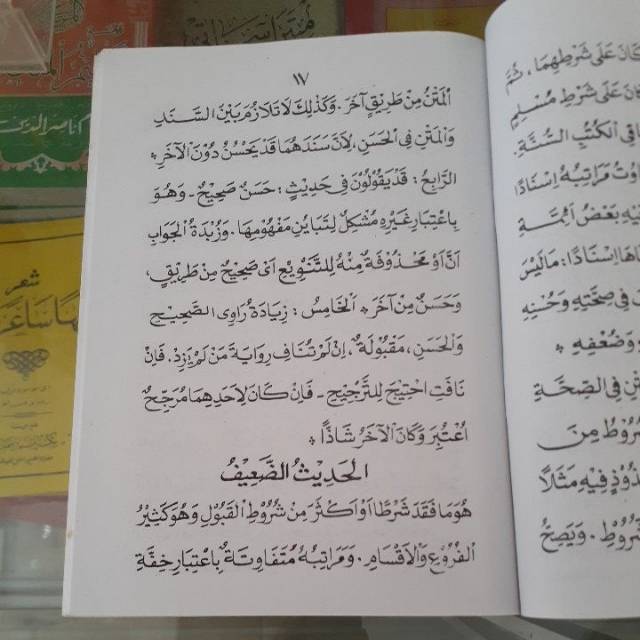 ١٧
الْمَتْنُ مِنْ طَرِيْقٍ آخَرَ. وَكَذٰلِكَ لَا تَلَازُمَ بَيْنَ السَّنَدِ
وَالْمَتْنِ فِى الْحَسَنِ، لِأَنَّ سَنَدَهُمَا قَدْ يَحْسُنُ دُوْنَ الْآخَرِ *
الرَّابِعُ : قَدْ يَقُوْلُوْنَ فِى حَدِيْثٍ ؛ حَسَنٌ صَحِيْحٌ ـ وَهُوَ
بِاعْتِبَارِ غَيْرِهِ مُشْكِلٌ لِتَبَايُنِ مَفْهُوْمِهَا. وَزُبْدَةُ الْجَوَابِ
أَنَّ أَوْ مَحْذُوْفَةٌ مِنْهُ لِلتَّنْوِيْعِ اَىْ صَحِيْحٌ مِنْ طَرِيْقٍ،
وَحَسَنٌ مِنْ آخَرَ * الْخَامِسُ : زِيَادَةُ رَاوِى الصَّحِيْحِ
وَالْحَسَنِ، مَقْبُوْلَةٌ. اِنْ لَمْ تُنَافِ رِوَايَةَ مَنْ لَمْ يَزِدْ. فَاِنْ
نَافَتِ احْتِيْجَ لِلتَّرْجِيْحِ ـ فَاِنْ كَانَ لِاَحَدِهِمَا مُرَجِّحٌ
اُعْتُبِرَ وَكَانَ الْآخَرُ شَاذًّا *
الْحَدِيْثُ الضَّعِيْفُ
هُوَ مَا فَقَدَ شَرْطًا اَوْ اَكْثَرَ مِنْ شُرُوْطِ الْقَبُوْلِ وَهُوَ كَثِيْرُ
الْفُرُوْعِ وَالْاَقْسَامِ. وَمَرَاتِبُهُ مُتَفَاوِتَةٌ بِاعْتِبَارِ خِفَّةِ
كَانَ عَلَى شَرْطِهِمَا، ثُمَّ
كَانَ عَلَى شَرْطِ مُسْلِمٍ
فِى الْكُتُبِ السِّتَّةِ.
مَرَاتِبُهُ اِسْنَادًا
بَعْضُ اَئِمَّةِ
اِسْنَادًا : مَا لَيْسَ
فِى صِحَّتِهِ وَحُسْنِهِ
وَضَعْفِهِ *
فِى الصِّحَّةِ
مِنَ
فِيْهِ مَثَلًا
وَيَصِحُّ
شعر